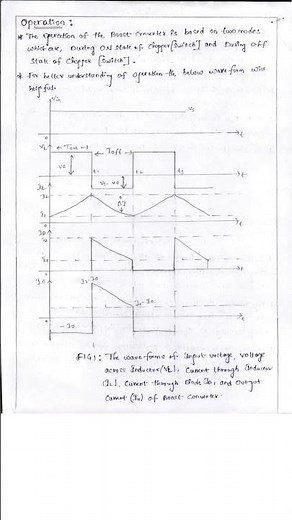 Operation:
* The operation of the Boost Converter is based on two modes
which are, During ON State of Chopper [Switch] and During off
State of Chopper [Switch].
* For better understanding of operation the below wave-form will
helpful.
Vin
Vs
t
VL
Ton
Toff
t
IL
ΔI
t
ID
t
I2-I0
I1-I0
-I0
t
FIG1: The wave-forms of Input voltage, voltage
across Inductor(VL), Current through Inductor
(IL), Current through Diode ID, and Output
Current (I0) of Boost Converter.